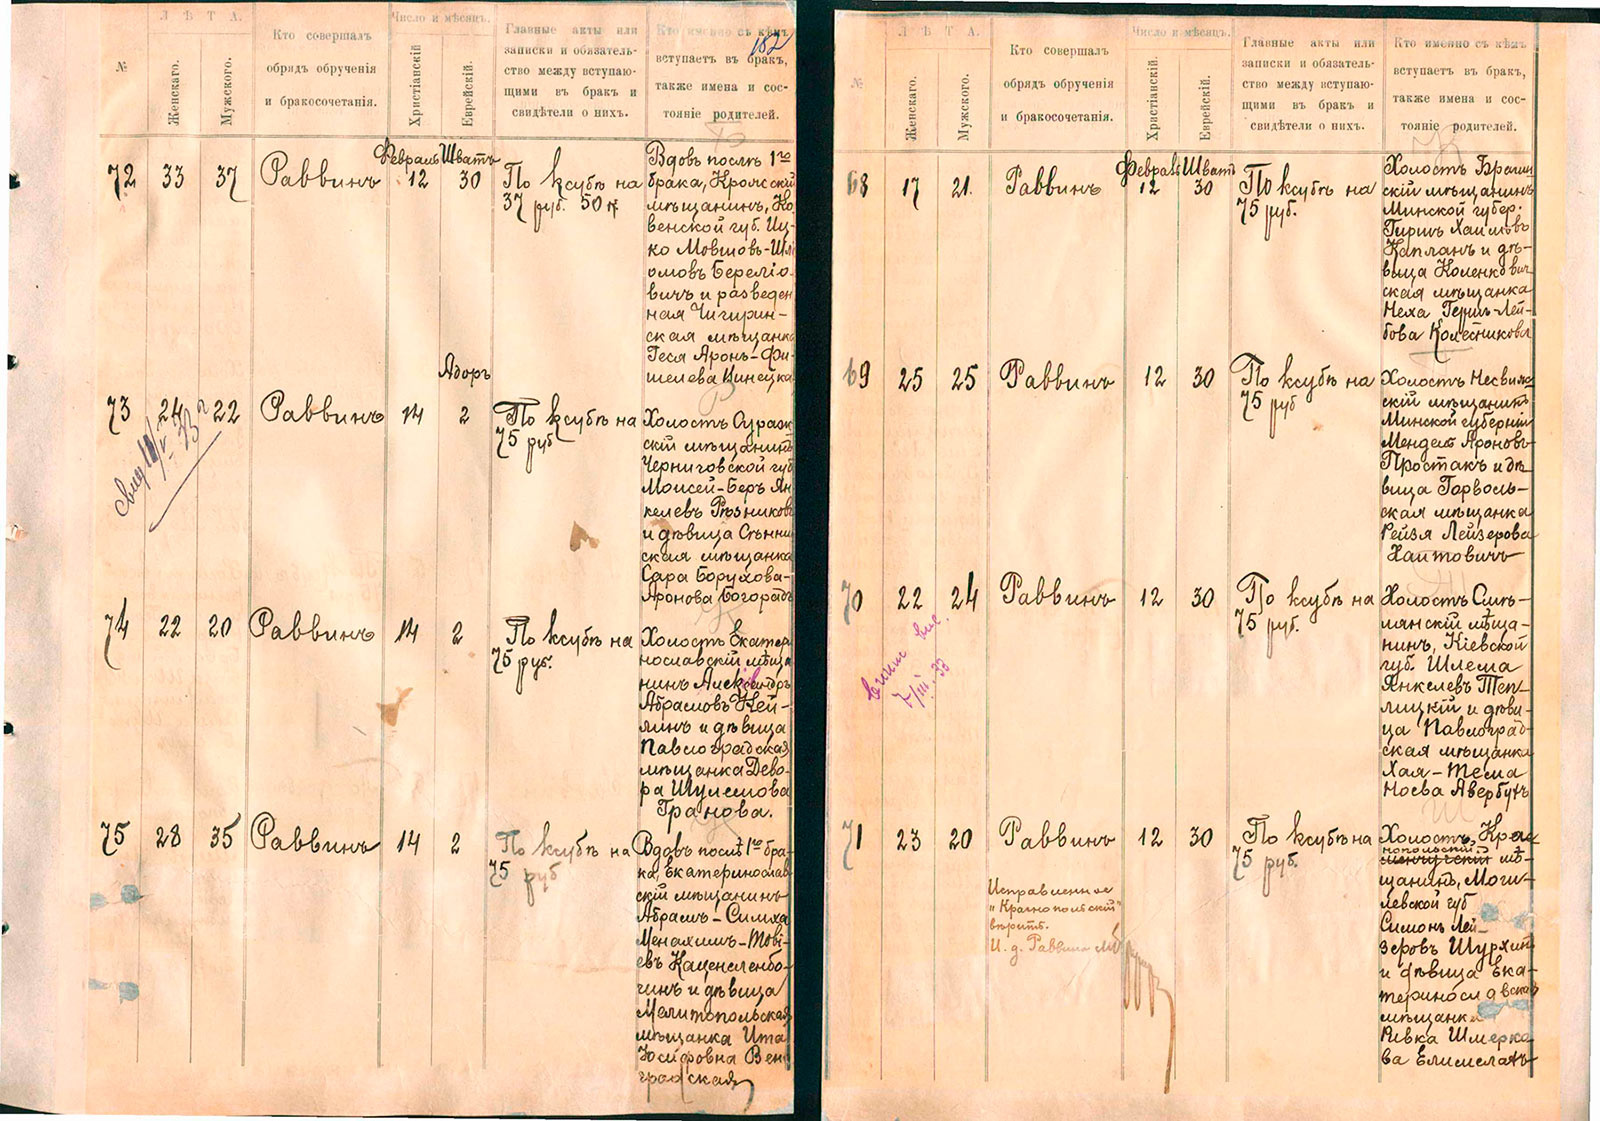 182
Л Ѣ Т А.
Число и мѣсяцъ.
№
Женскаго.
Мужского.
Кто совершалъ
обрядъ обрученія
и бракосочетанія.
Христіанскій
Еврейскій.
Главные акты или
записки и обязатель-
ство между вступаю-
щими въ бракъ и
свидѣтели о нихъ.
Кто именно съ кѣмъ
вступаетъ въ бракъ,
также имена и сос-
тояніе родителей.
72
33
37
Раввинъ
Февраль
12
Шватъ
30
По ксубѣ на
37 руб. 50 к
Вдовъ послѣ 1го
брака, Крожскій
мѣщанинъ, Ко
венской губ. Иц-
ко Мовшовъ-Шл
омовъ Береліо
вичъ и разведен
ная Чигирин-
ская мѣщанка
Геся Аронъ-Фи-
шелева Винецка
73
24
22
Раввинъ
14
Адоръ
2
По ксубѣ на
75 руб
Холостъ Сураж
скій мѣщанинъ
Черниговской губ
Моисей-Беръ Ян
келевъ Рѣзников
и дѣвица Сѣнни
ская мѣщанка
Сара Борухова-
Аронова Богорадъ
74
22
20
Раввинъ
14
2
По ксубѣ на
75 руб.
Холостъ Екатер
нославскій мѣща
нинъ Александръ
Абрамовъ Ней-
линъ и дѣвица
Павлоградская
мѣщанка Дево-
ра Шулемова
Гранова.
75
28
35
Раввинъ
14
2
По ксубѣ на
75 руб
Вдовъ послѣ 1го бра-
ка, Екатеринослав
скій мѣщанинъ
Абрамъ-Симха
Менахимъ-Тові-
евъ Каценеленбо-
гинъ и дѣвица
Мелитопольская
мѣщанка Ита
Іосифовна Вен
градская
Л Ѣ Т А.
Число и мѣсяцъ.
№
Женскаго.
Мужского.
Кто совершалъ
обрядъ обрученія
и бракосочетанія.
Христіанскій
Еврейскій.
Главные акты или
записки и обязатель-
ство между вступаю-
щими въ бракъ и
свидѣтели о нихъ.
Кто именно съ кѣмъ
вступаетъ въ бракъ,
также имена и сос-
тояніе родителей.
68
17
21.
Раввинъ
Февраль
12
Шватъ
30
По ксубѣ на
75 руб.
Холостъ Брагин
скій мѣщанинъ
Минской губер.
Гиршъ Хаимовъ
Капланъ и дѣ-
вица Коленкович
ская мѣщанка
Неха Гершъ-Лей-
бова Колесникова
69
25
25
Раввинъ
12
30
По ксубѣ на
75 руб
Холостъ Несвиж
скій мѣщанинъ
Минской губерніи
Мендель Ароновъ
Простакъ и дѣ
вица Горволь-
ская мѣщанка
Рейзя Лейзерова
Хаитовичъ
70
22
24
Раввинъ
12
30
По ксубѣ на
75 руб.
7/III.33
Холостъ Смѣ-
лянскій мѣща-
нинъ, Кіевской
губ. Шлема
Янкелевъ Теп-
лицкій и дѣви-
ца Павлоград-
ская мѣщанка
Хая-Тема
Ноева Авербухъ
71
23
20
Раввинъ
12
30
По ксубѣ на
75 руб.
Холостъ, Крас
нопольскій
менчугскій мѣ-
щанинъ, Моги-
левской губ
Симонъ Лей-
зеровъ Шурхин
и дѣвица Ека-
теринославская
мѣщанка
Ривка Шмерко
ва Елимелахъ
Исправленное
"Краснопольскій"
вѣрить.
И. д. Раввина